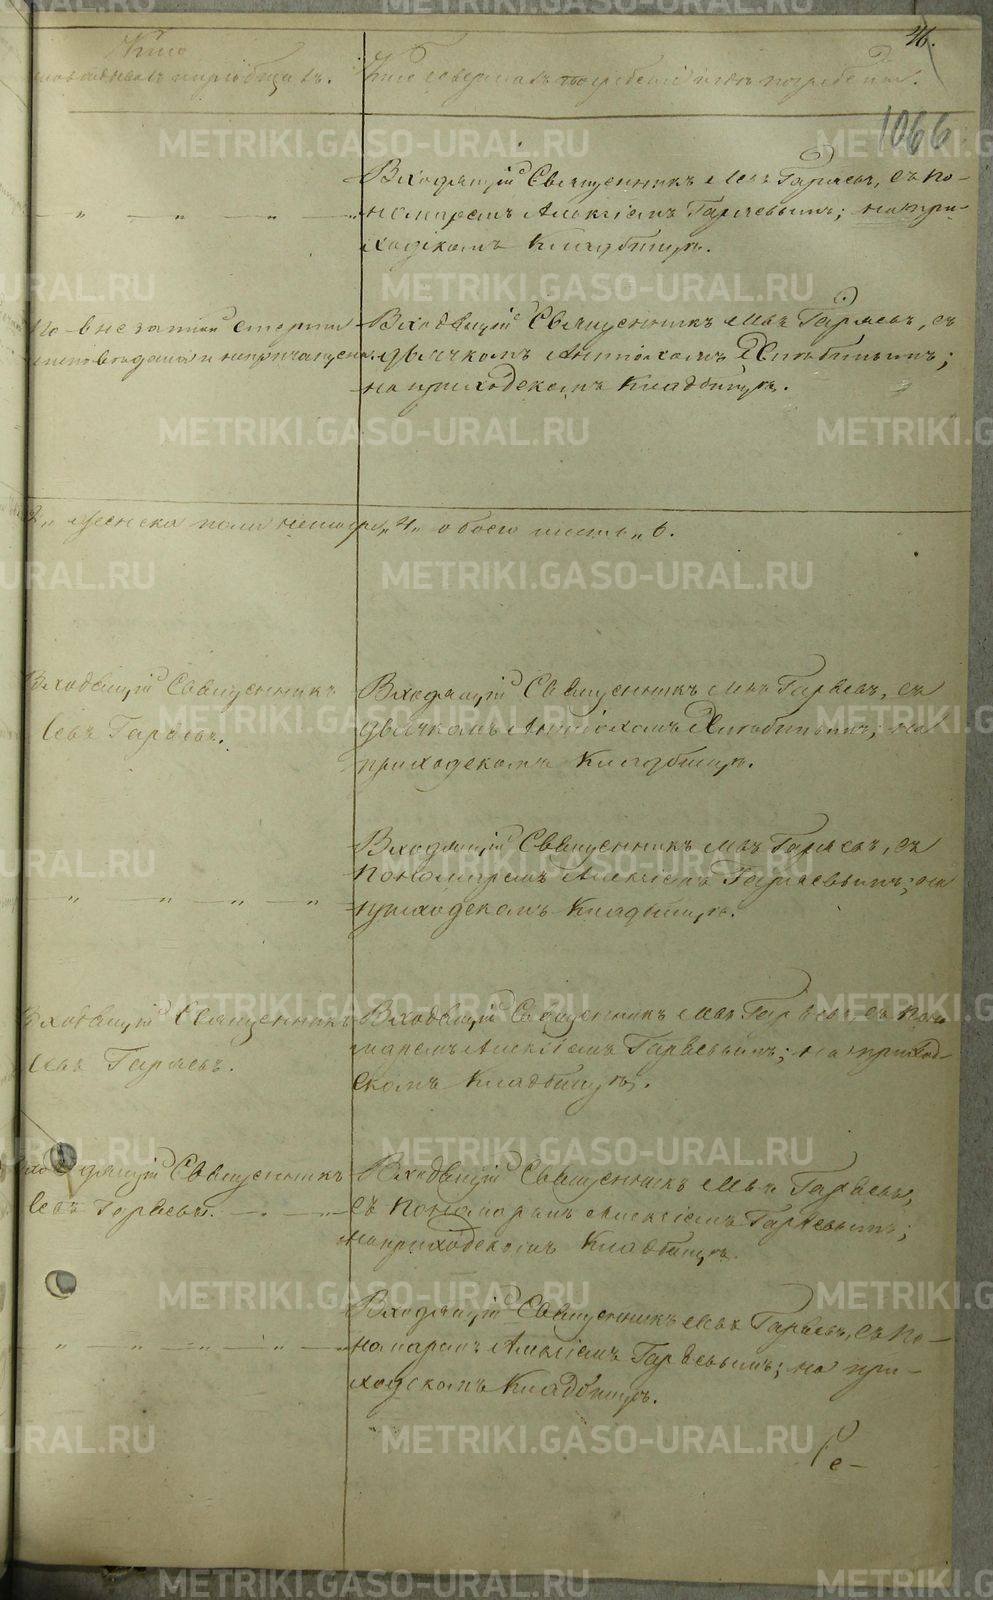 46.
1066
Кто
исповѣдывалъ и пріобщалъ.
Кто совершалъ погребеніе и гдѣ погребены.
Входящій Священникъ Левъ Гаряевъ, съ по-
номаремъ Алексіемъ Гаряевымъ; на при-
ходскомъ Кладбищѣ.
По внезапной смерти
неисповѣдана и непричащена.
Входящій Священникъ Левъ Гаряевъ, съ
дьячкомъ Антіохомъ Хлѣбинымъ;
на приходскомъ Кладбищѣ.
2„ женска пола четыре „4„ обоего шесть „6.
Входящій Священникъ
Левъ Гаряевъ.
Входящій Священникъ Левъ Гаряевъ, съ
дьячкомъ Антіохомъ Хлѣбинымъ; на
приходскомъ Кладбищѣ.
Входящій Священникъ Левъ Гаряевъ, съ
пономаремъ Алексіемъ Гаряевымъ; на
приходскомъ Кладбищѣ.
Входящій Священникъ
Левъ Гаряевъ.
Входящій Священникъ Левъ Гаряевъ, съ поно
маремъ Алексіемъ Гаряевымъ; на приход-
скомъ Кладбищѣ.
Входящій Священникъ
Левъ Гаряевъ.
Входящій Священникъ Левъ Гаряевъ,
съ пономаремъ Алексіемъ Гаряевымъ;
на приходскомъ Кладбищѣ.
Входящій Священникъ Левъ Гаряевъ, съ по-
номаремъ Алексіемъ Гаряевымъ; на при-
ходскомъ Кладбищѣ.
Ре-
METRIKI.GASO-URAL.RU